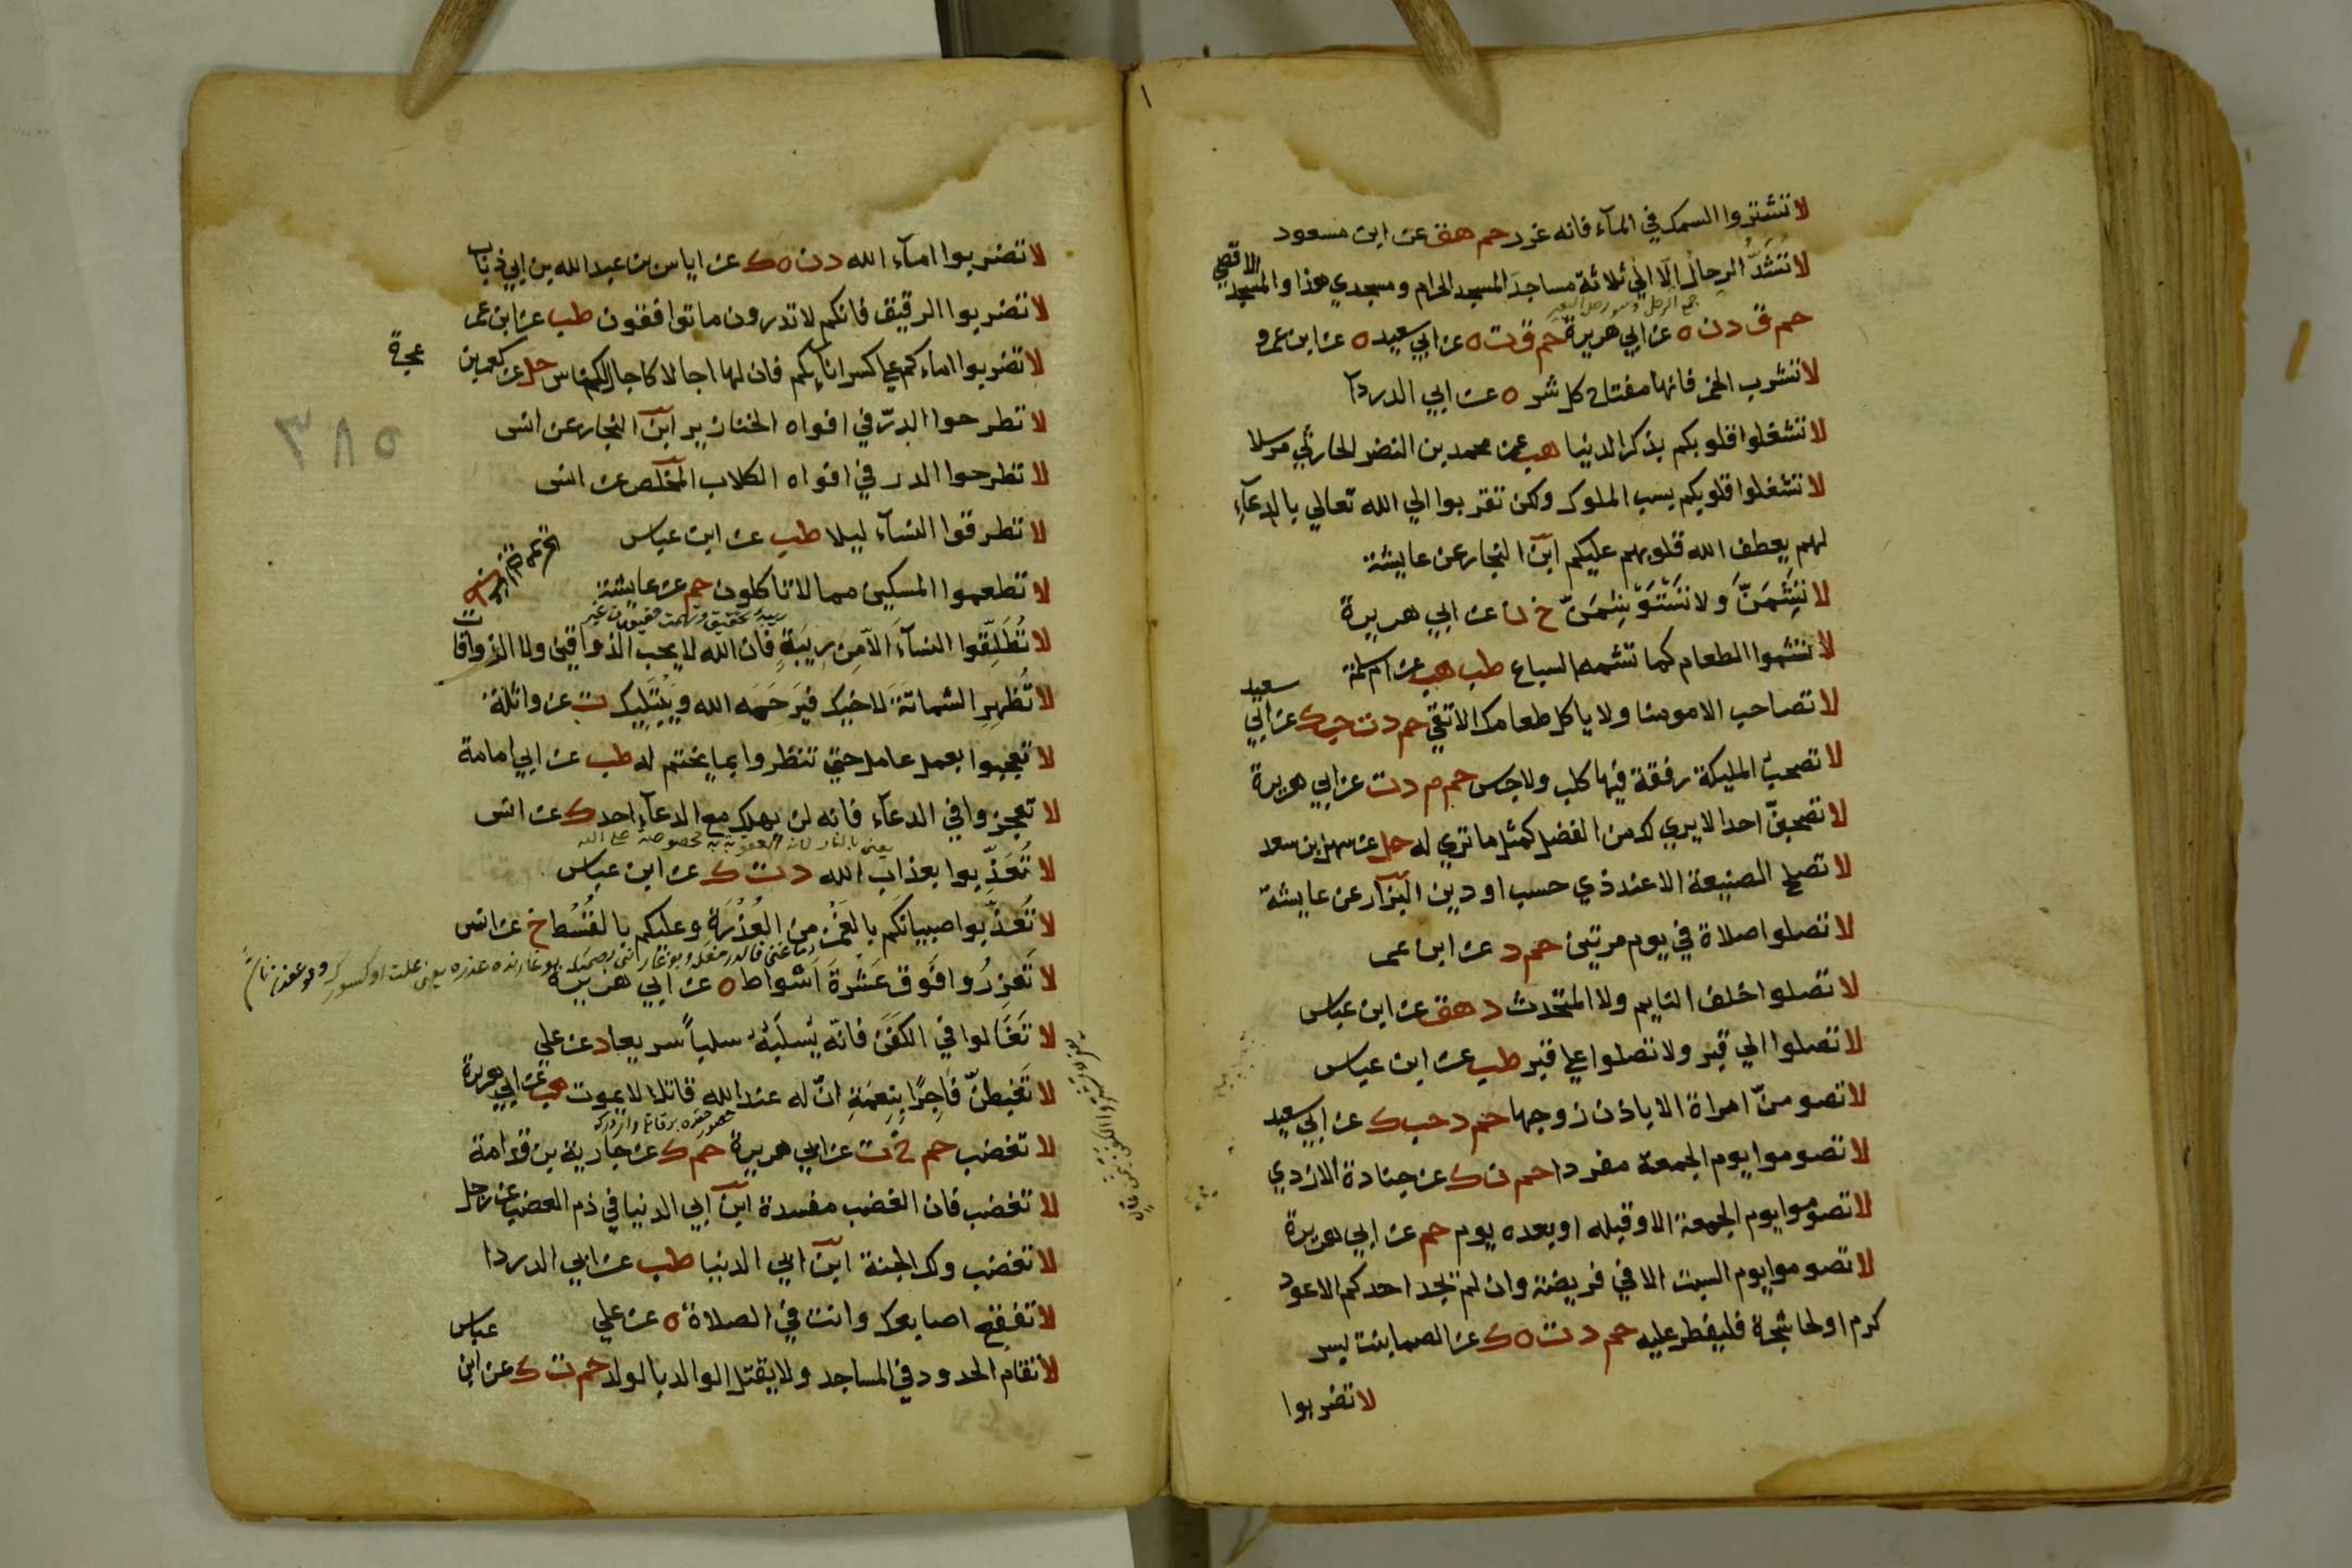 لا تشتروا السمك في المآء فانه غرر حم هق عن ابن مسعود
لا تُشَدُّ الرحال الّا الي ثلاثة مساجد المسجد الحرام ومسجدي هذا والمسجد الاقصي
جمع الرحل وهو رحل البعير
حم ق د ن ه عن ابي هريرة حم ق ت ه عن ابي سعيد ه عن ابن عمرو
لا تشرب الخمر فانها مفتاح كل شر ه عن ابي الدردآ
لا تشغلوا قلوبكم بذكر الدنيا هب عن محمد بن النضر الحارثي مرسلا
لا تشغلوا قلوبكم بسب الملوك ولكن تقربوا الي الله تعالي بالدعآء
لهم يعطف الله قلوبهم عليكم ابن النجار عن عايشة
لا تَشِمَنَّ ولا تَسْتَوْشِمَنّ خ ن عن ابي هريرة
لا تشموا الطعام كما تشمه السباع طب هب عن ام سلمة
لا تصاحب الا مومنا ولا ياكل طعامك الا تقي حم د ت حب ك عن ابي سعيد
لا تصحب المليكة رفقة فيها كلب ولا جرس حم م د ت عن ابي هريرة
لا تصحبنّ احدا لا يري لك من الفضل كمثل ما تري له حل عن سهل بن سعد
لا تصلح الصنيعة الا عند ذي حسب او دين البزار عن عايشة
لا تصلوا صلاة في يوم مرتين حم د عن ابن عمر
لا تصلوا خلف النايم ولا المتحدث د هق عن ابن عباس
لا تصلوا الي قبر ولا تصلوا علي قبر طب عن ابن عباس
لا تصومنّ امراة الا باذن زوجها حم د حب ك عن ابي سعيد
لا تصوموا يوم الجمعة مفردا حم ن ك عن جنادة الازدي
لا تصوموا يوم الجمعة الا وقبله او بعده يوم حم عن ابي هريرة
لا تصوموا يوم السبت الا في فريضة وان لم يجد احدكم الا عود
كرم او لحا شجرة فليفطر عليه حم د ت ه ك عن الصما بنت بسر
لا تضربوا
لا تضربوا امآء الله د ن ه ك عن اياس بن عبد الله بن ابي ذباب
لا تضربوا الرقيق فانكم لا تدرون ما توافقون طب عن ابن عمر
لا تضربوا اماءكم علي كسر انآيكم فان لها اجالا كاجال الناس حل عن كعب بن
عجرة
لا تطرحوا الدرّ في افواه الخنازير ابن النجار عن انس
٣٨٥
لا تطرحوا الدر في افواه الكلاب المخلص عن انس
لا تطرقوا النسآء ليلا طب عن ابن عباس
لا تطعموا المسكين مما لا تاكلون حم عن عايشة
لا تُطَلِّقوا النسآء الّا مِن رِيبَةٍ فان الله لا يحب الذواقين ولا الذواقات
لا تُظهِرِ الشماتَةَ لاخيك فيَرحَمَه الله ويَبْتَلِيك ت عن واثلة
لا تعجبوا بعمل عامل حتي تنظروا بما يختم له طب عن ابي امامة
لا تعجزوا في الدعآء فانه لن يهلك مع الدعآء احد ك عن انس
لا تُعَذِّبوا بعذاب الله د ت ك عن ابن عباس
لا تُعذِّبوا صبيانكم بالغَمْز من العُذْرَةِ وعليكم بالقُسْط خ عن انس
لا تَعزِرُوا فَوق عَشْرَةَ اَسْواط ه عن ابي هريرة
لا تَغَالوا في الكَفَن فانّه يُسلَبُهُ سلباً سريعا د عن علي
لا تَغبِطنّ فَاجِرًا بِنِعمَةٍ انّ له عند الله قاتلا لا يموت هب عن ابي هريرة
لا تغضب حم خ ت عن ابي هريرة حم ك عن جارية بن قدامة
لا تغضب فان الغضب مفسدة ابن ابي الدنيا في ذم الغضب عن رجل
لا تغضب ولك الجنة ابن ابي الدنيا طب عن ابي الدردا
لا تفقع اصابعك وانت في الصلاة ه عن علي
لا تقام الحدود في المساجد ولا يقتل الوالد بالولد حم ت ك عن ابن
عباس